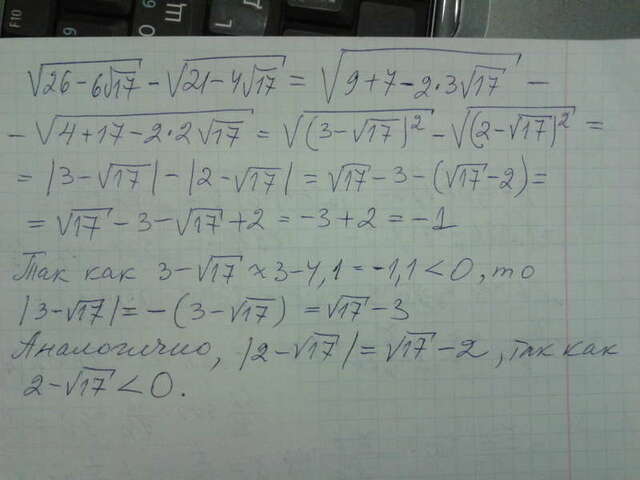 F10 6 Щ Д
√(26-6√17) - √(21-4√17) = √(9+7-2·3√17) -
- √(4+17-2·2√17) = √((3-√17)²) - √((2-√17)²) =
= |3-√17| - |2-√17| = √17 - 3 - (√17-2) =
= √17 - 3 - √17 + 2 = -3+2 = -1
Так как 3-√17 ≈ 3-4,1 = -1,1 < 0, то
|3-√17| = -(3-√17) = √17 - 3
Аналогично, |2-√17| = √17 - 2, так как
2-√17 < 0.